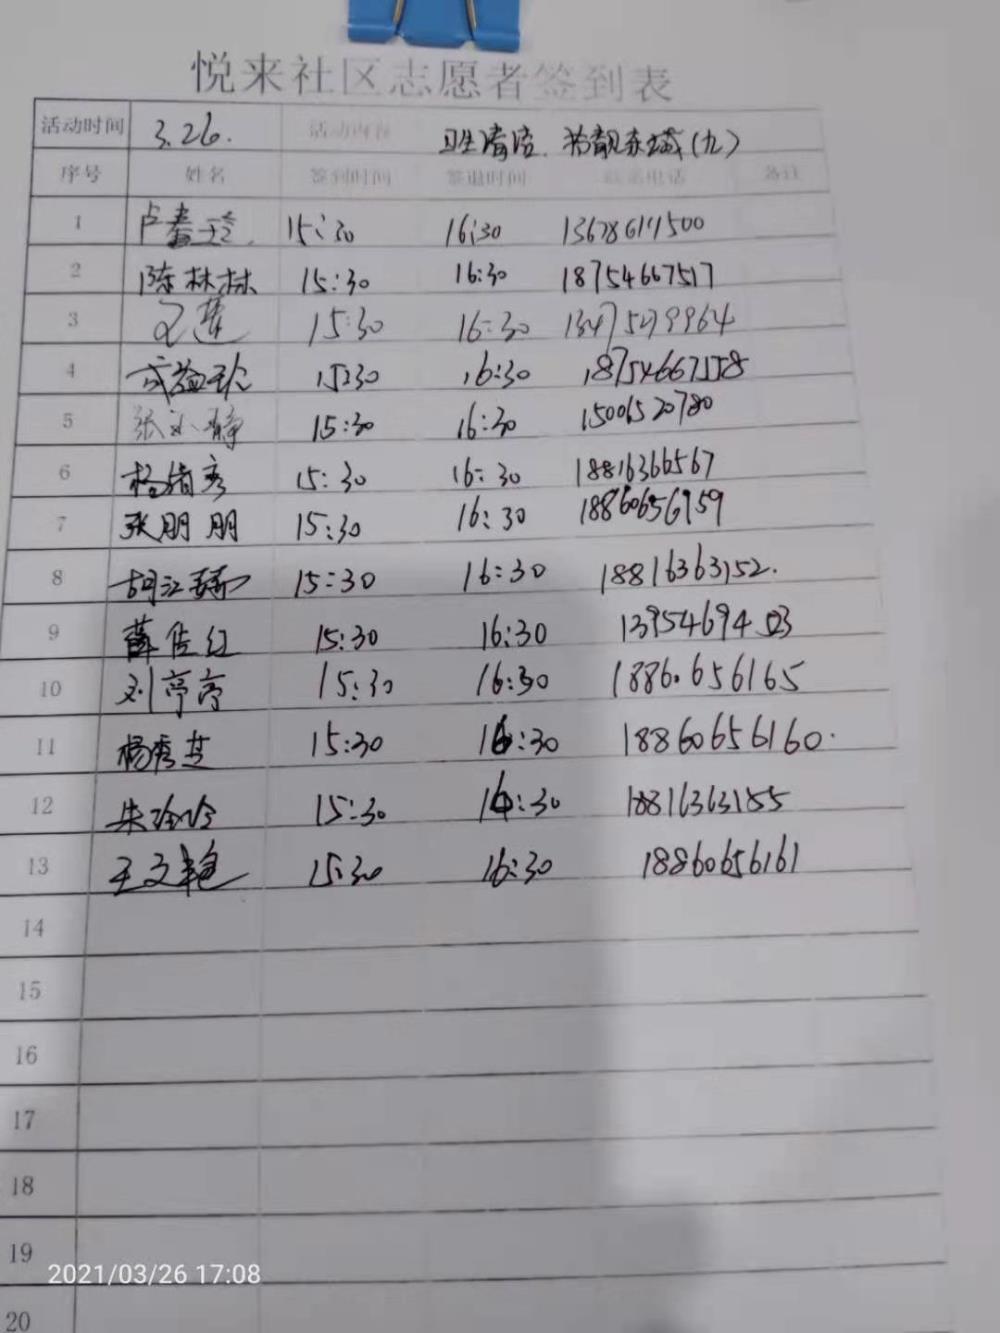 悦来社区志愿者签到表
活动时间 3.26. 活动内容 卫生清洁 靓东城(九)
序号 姓名 签到时间 签退时间 联系电话 备注
1 卢春玲 15:30 16:30
2 陈林林 15:30 16:30 18754667517
3 15:30 16:30
4 15:30 16:30 18754667558
5 张小静 15:30 16:30 15006520780
6 杨清秀 15:30 16:30 18816366567
7 张朋朋 15:30 16:30 18860656959
8 胡江 15:30 16:30 18816363152.
9 薛佳红 15:30 16:30
10 刘亭亭 15:30 16:30 18860656165
11 杨秀芝 15:30 16:30 18860656160.
12 朱玲玲 15:30 16:30 18816363155
13 王文艳 15:30 16:30 18860656161
14
15
16
17
18
19
2021/03/26 17:08
20